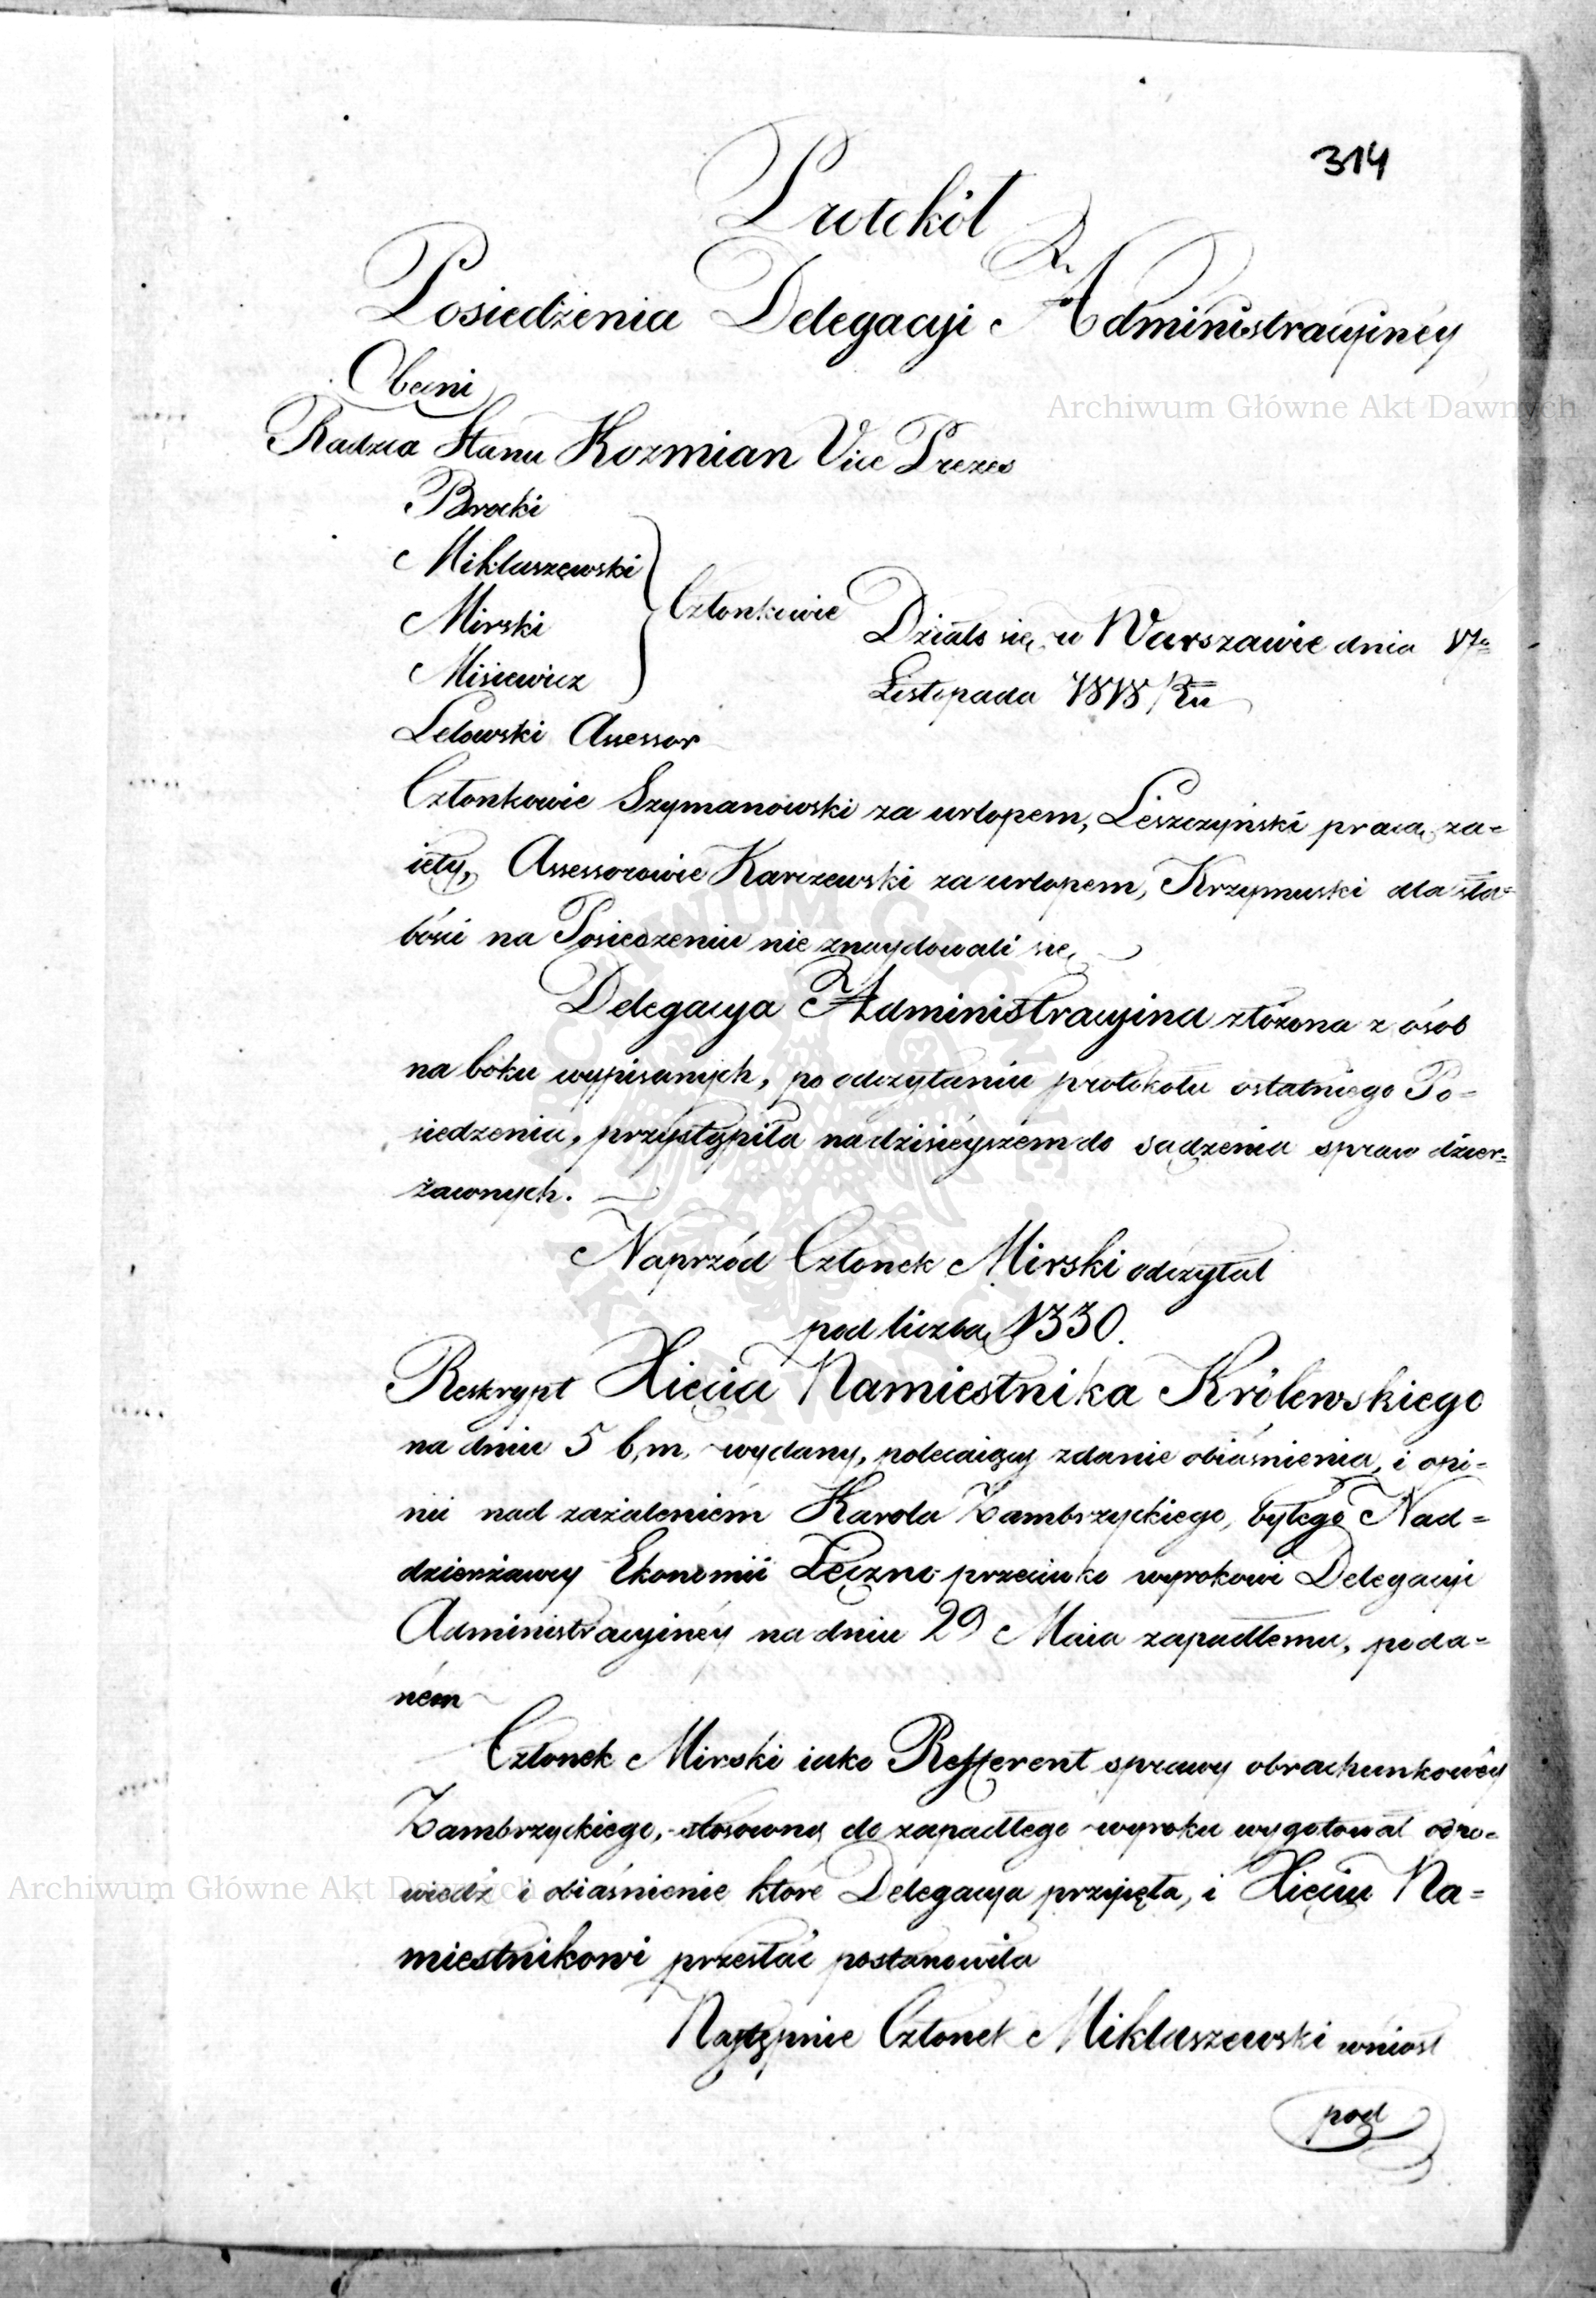 314
Protokół
Posiedzenia Delegacyi Administracyiney
Obecni
Radzca Stanu Kozmian Vice Prezes
Brocki
Mikłaszewski
Mirski
Misiewicz
Członkowie
Działo się w Warszawie dnia 17º
Listopada 1818 Ru
Lelowski Assessor
Członkowie Szymanowski za urlopem, Leszczyński pracą za=
ięty, Assessorowie Karczewski za urlopem, Krzymuski dla sła=
bości na Posiedzeniu nie znaydowali się
Delegacya Administracyina złożona z osób
na boku wypisanych, po odczytaniu protokołu ostatniego Po=
siedzenia, przystąpiła na dzisieyszém do sądzenia spraw dzier=
żawnych.
Naprzód Członek Mirski odczytał
pod liczbą 1330.
Reskrypt Xięcia Namiestnika Królewskiego
na dniu 5 b. m. wydany, polecaiący zdanie obiaśnienia, i opi=
nii nad zażaleniem Karola Zambrzyckiego, byłego Nad=
dzierżawcy Ekonomii Łęczno przeciwko wyrokowi Delegacyi
Administracyinéy na dniu 29 Maia zapadłemu, poda=
ném
Członek Mirski iako Refferent sprawy obrachunkowéy
Zambrzyckiego, stosowną do zapadłego wyroku wygotował odpo=
wiedź i obiaśnienie które Delegacya przyięła, i Xięciu Na=
miestnikowi przesłać postanowiła
Następnie Członek Mikłaszewski wniosł
pod
Archiwum Główne Akt Dawnych
Archiwum Główne Akt Dawnych
ARCHIWUM GŁÓWNE AKT DAWNYCH